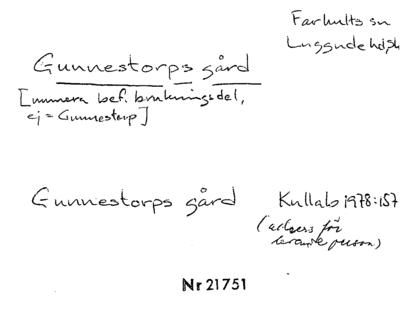 Farhults sn
Luggude hd, Sk
Gunnestorps gård
[numera bef. brukningsdel,
ej = Gunnestorp]
Gunnestorps gård
Kullab 1978:157
(adress för
levande person)
Nr 21751